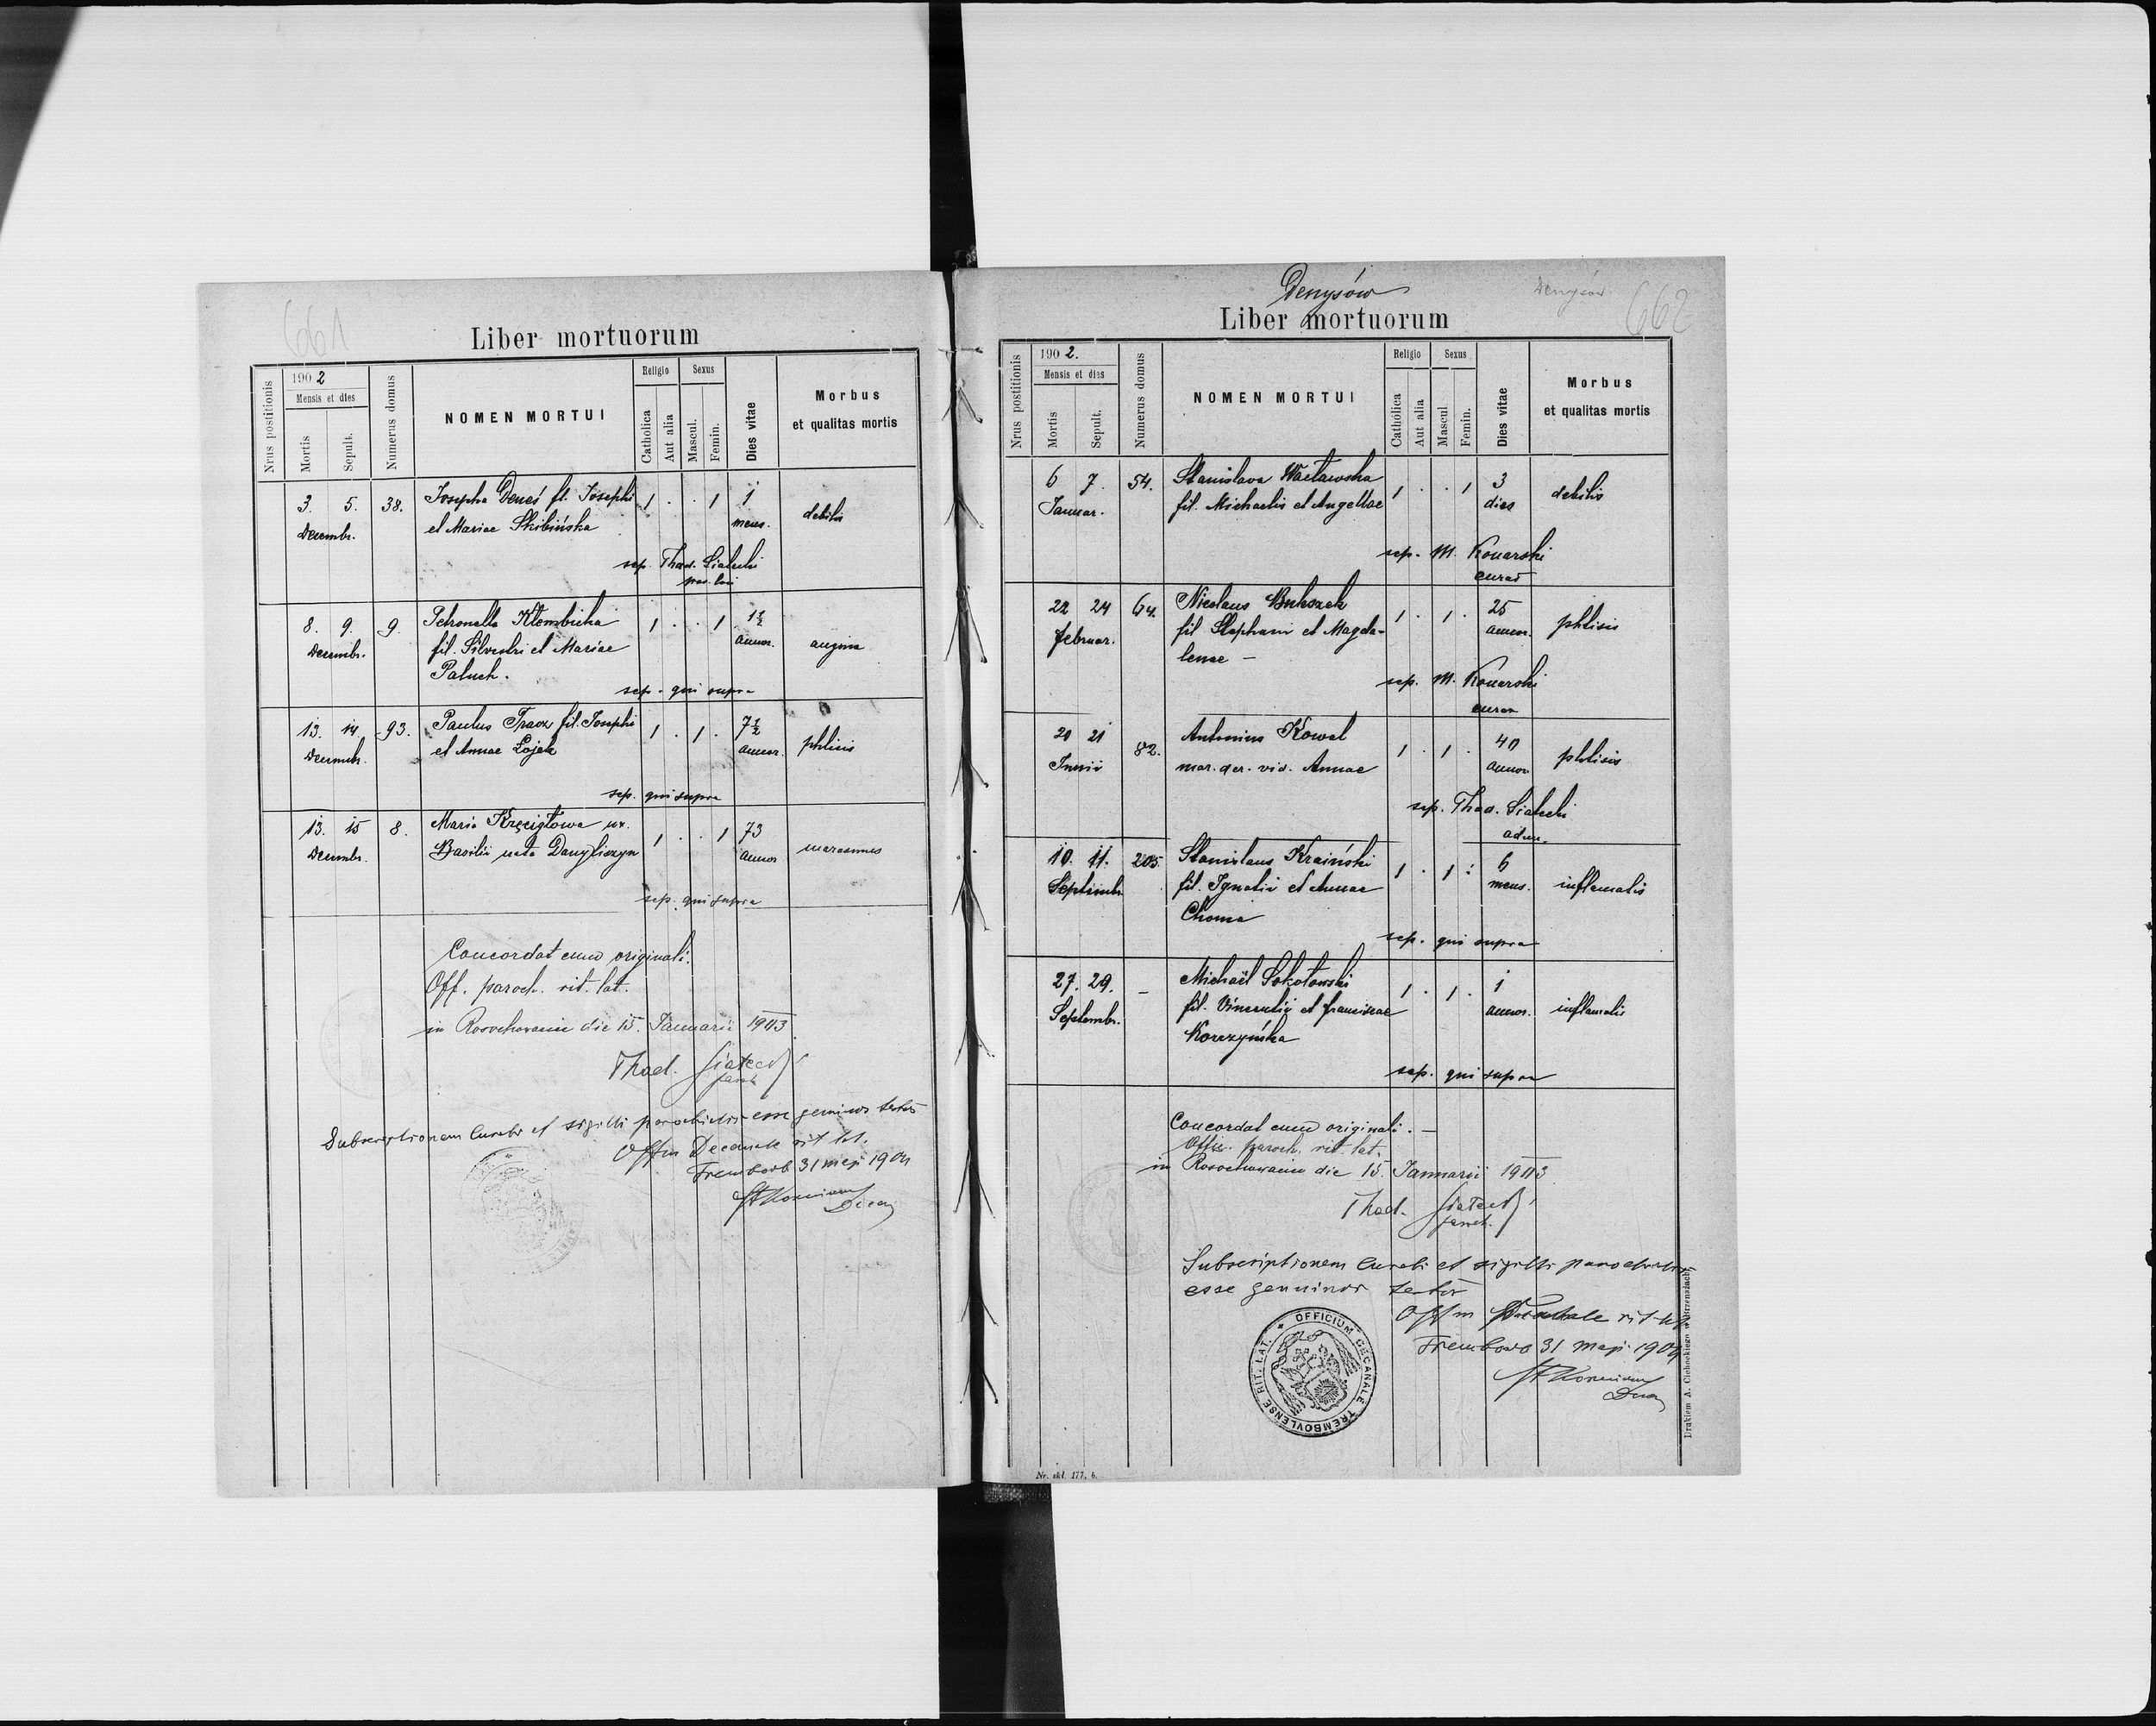 661
Liber mortuorum
Nrus postitionis
1902
Mensis et dies
Mortis
Sepult.
Numerus domus
NOMEN MORTUI
Religio
Catholica
Aut alia
Sexus
Mascul.
Femin.
Dies vitae
Morbus
et qualitas mortis
3. 5. 38. Josepha Deneś fil. Josephi 1 . . 1 1
Decembr. et Mariae Skibińska mens. debilis
sep. Thad. Siatecki
par. loci
8. 9. 9. Petronella Kłembicka 1 . . 1 1½
Decembr. fil. Silvestri et Mariae annor. angina
Paluch.
sep. qui supra
13. 14 93. Paulus Tracz fil. Josephi 1 . 1 . 7½
Decembr. et Annae Łojek annor. phtisis
sep. qui supra
13. 15 8. Maria ux. 1 . . 1 73
Decembr. Basilii nata Danyliszyn annor marasmus
sep. qui supra
Concordat cum originali.
Off. paroch. rit. lat.
in Rosochowaciec die 15. Januarii 1903
Thad. Siatecki
paroch
Subscriptionem Curati et sigilli parochialis esse genuinos testor
Offm Decanale rit lat.
Trembowla 31 maji 1904
Decan
Denysów
Denysów
662
Liber mortuorum
Nrus postitionis
1902.
Mensis et dies
Mortis
Sepult.
Numerus domus
NOMEN MORTUI
Religio
Catholica
Aut alia
Sexus
Mascul.
Femin.
Dies vitae
Morbus
et qualitas mortis
6 7. 54. Stanislava Wacławska 1 . . 1 3
Januar. fil. Michaelis et Angellae dies debilis
sep. M. Konarski
curat
22 24 64. Nicolaus 1 . 1 . 25
Februar. fil Stephani et Magda- annor. phtisis
lenae —
sep. M. Konarski
curat
20 21 82. Antonius Kowal 1 . 1 . 40
Junii mar. der. vid. Annae annor. phtisis
sep. Thad. Siatecki
adm.
10. 11. 205. Stanislaus Kraiński 1 . 1 . 6
Septembr. fil. Ignatii et Annae mens. inflamatis
Choma
sep. qui supra
27. 29. – Michaël Sokołowski 1 . 1 . 1
Septembr. fil. Vincentii et Franciscae annor. inflamatis
Korczyńska
sep. qui supra
Concordat cum originali. —
Offic. paroch. rit. lat.
in Rosochowaciec die 15. Januarii 1903
Thad. Siatecki
paroch.
Subscriptionem Curati et sigilli parochialis
esse genuinos testor
Offm Decanale rit lat
Trembowla 31 maji 1904
Decan
OFFICIUM DECANALE TREMBOVLENSE RIT. LAT.
Nr. skł. 177. b.
Drukiem A. Cichockiego w Brzeżanach